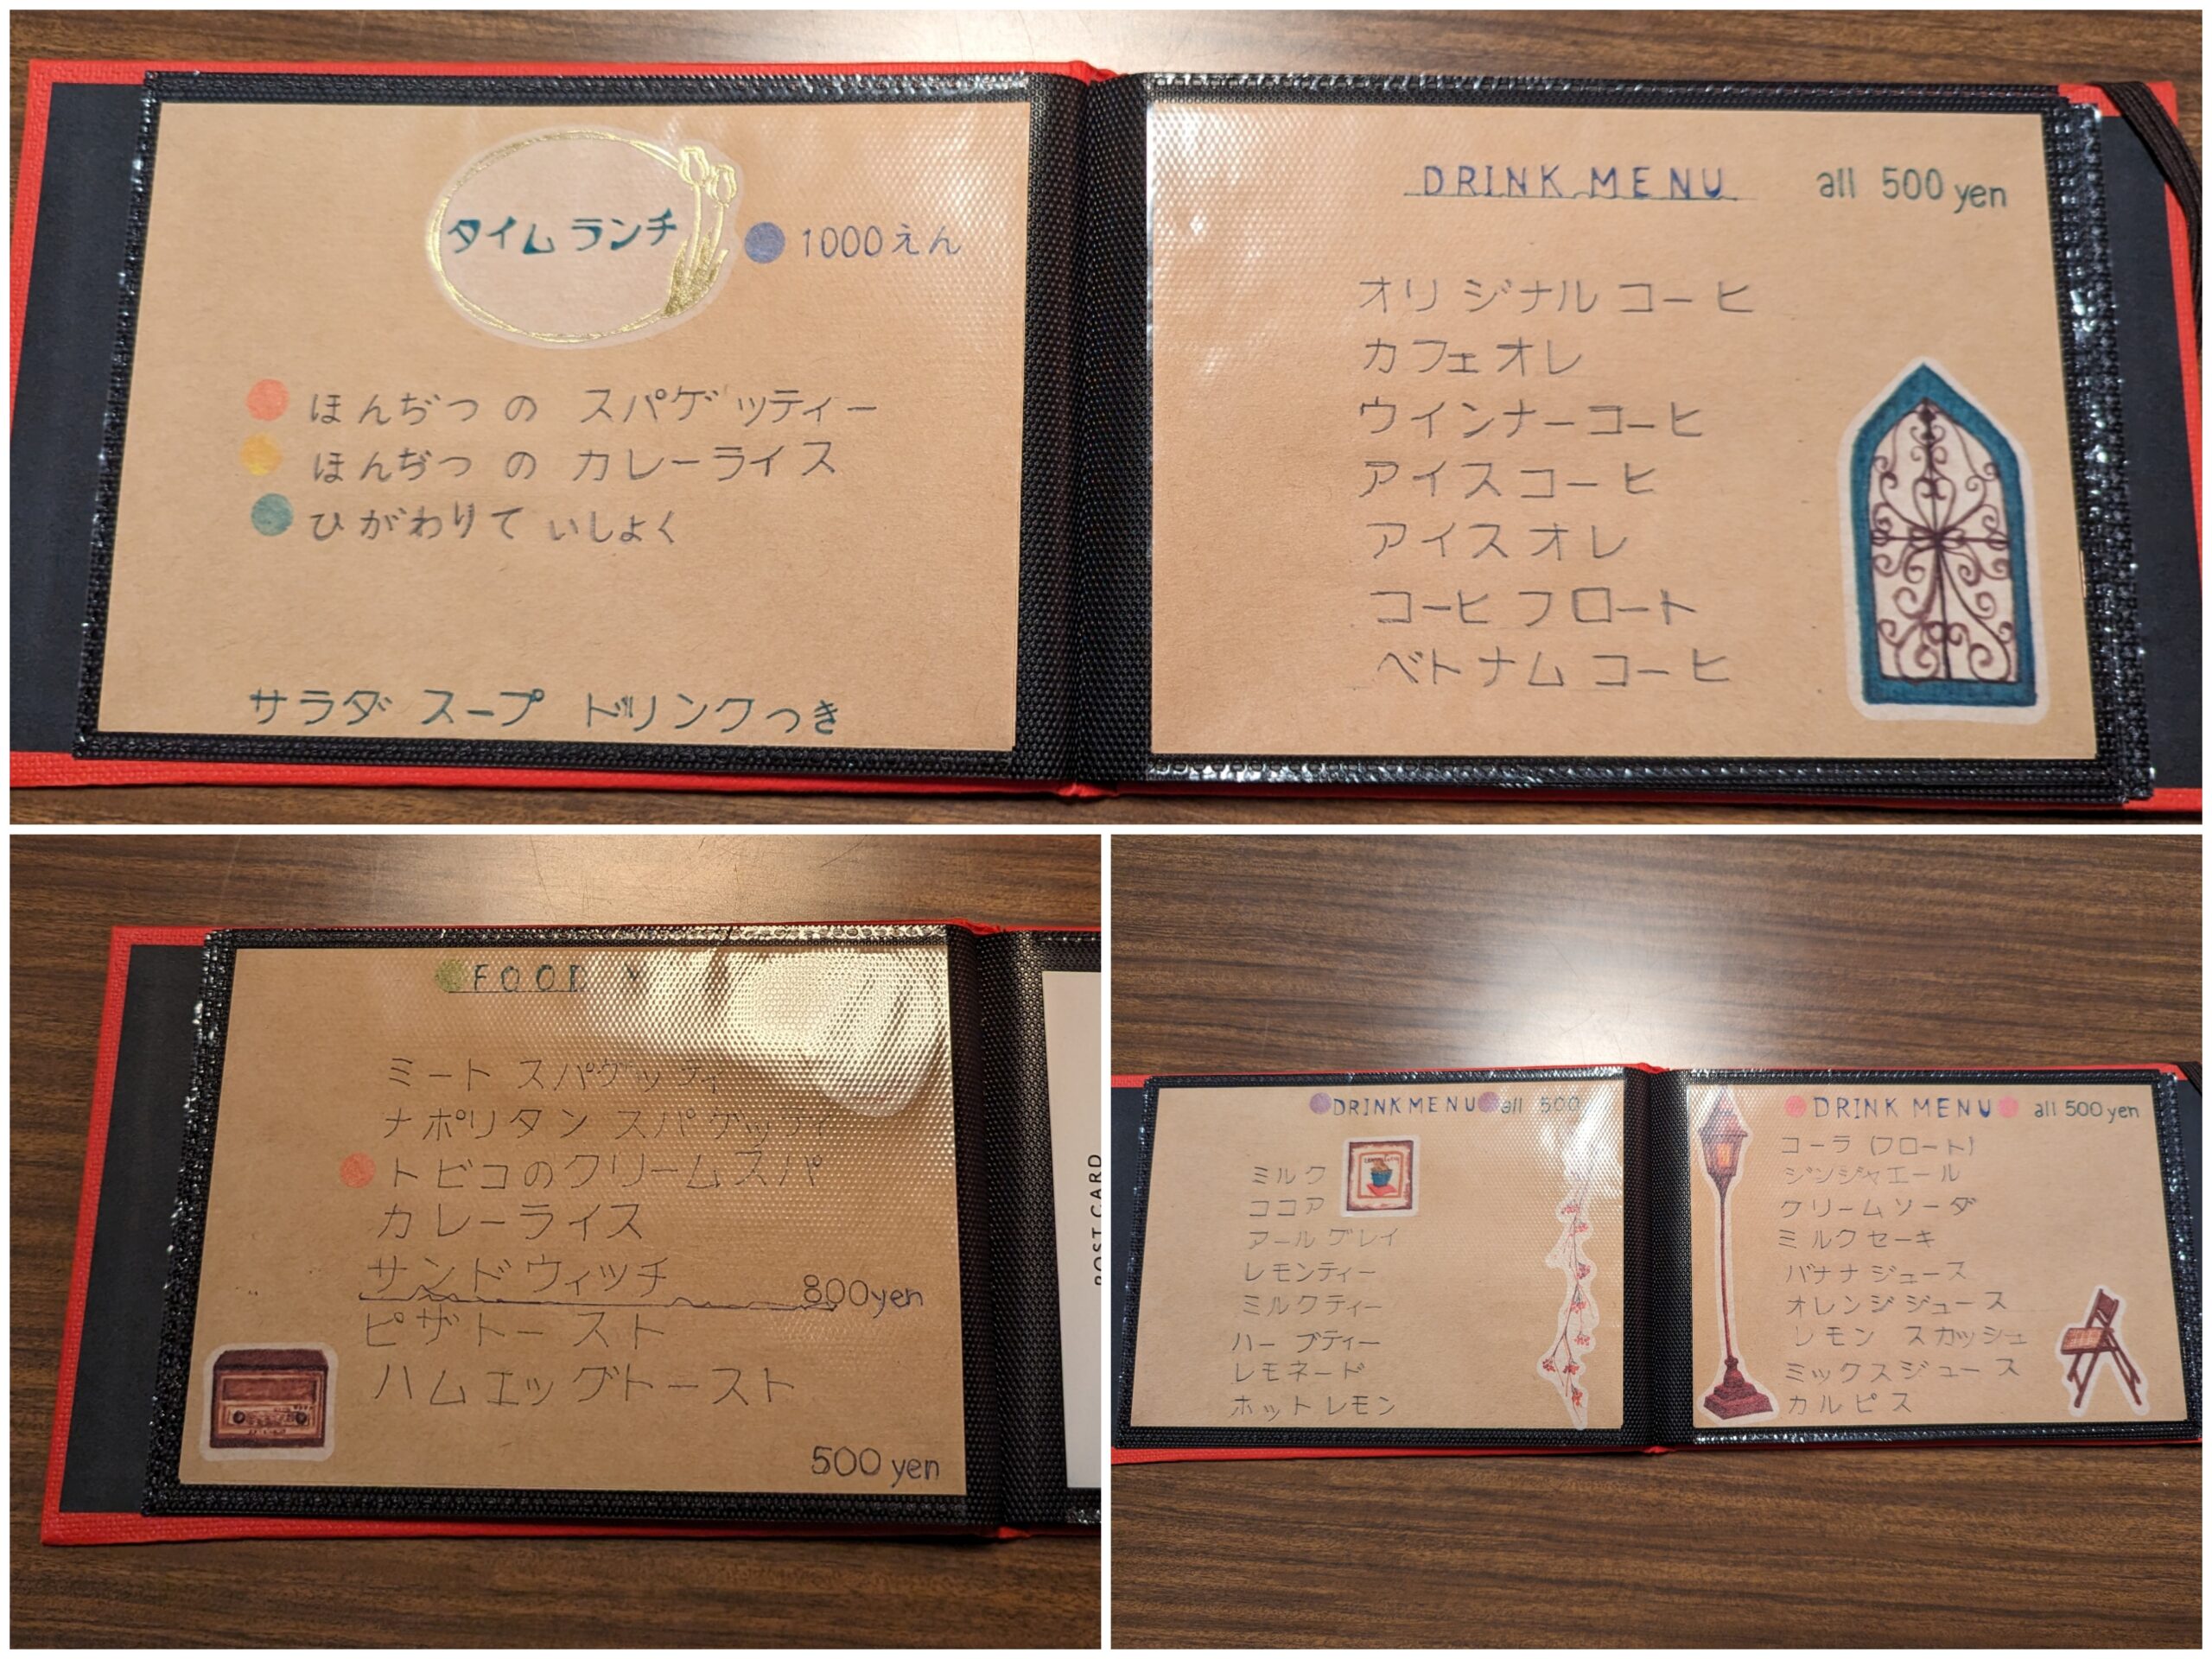 タイム ランチ
1000えん
ほんぢつ の スパゲッティー
ほんぢつ の カレーライス
ひがわりていしょく
サラダ スープ ドリンクつき
DRINK MENU all 500 yen
オリジナル コーヒ
カフェオレ
ウインナーコーヒ
アイスコーヒ
アイスオレ
コーヒフロート
ベトナムコーヒ
FOOD
ミート スパゲッティ
ナポリタン スパゲッティ
トビコのクリームスパ
カレーライス
サンドウィッチ
800yen
ピザトースト
ハムエッグトースト
500 yen
POST CARD
DRINK MENU all 500
ミルク
ココア
アールグレイ
レモンティー
ミルクティー
ハーブティー
レモネード
ホットレモン
DRINK MENU all 500 yen
コーラ (フロート)
ジンジャエール
クリームソーダ
ミルクセーキ
バナナジュース
オレンジジュース
レモン スカッシュ
ミックスジュース
カルピス